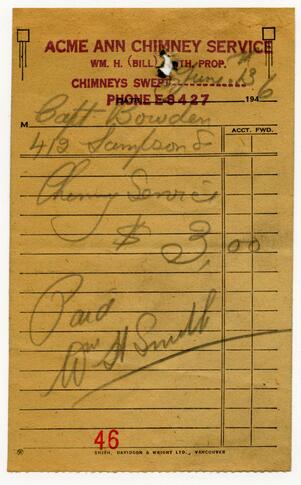 ACME ANN CHIMNEY SERVICE
WM. H. (BILL) TH, PROP.
CHIMNEYS SWEPT June 13th
PHONE E-8427 1946
M Capt Bowden
ACCT. FWD.
412 Sampson S
Chimny Service
$ 3,00
Paid
Wm H Smith
46
SMITH, DAVIDSON & WRIGHT LTD., VANCOUVER